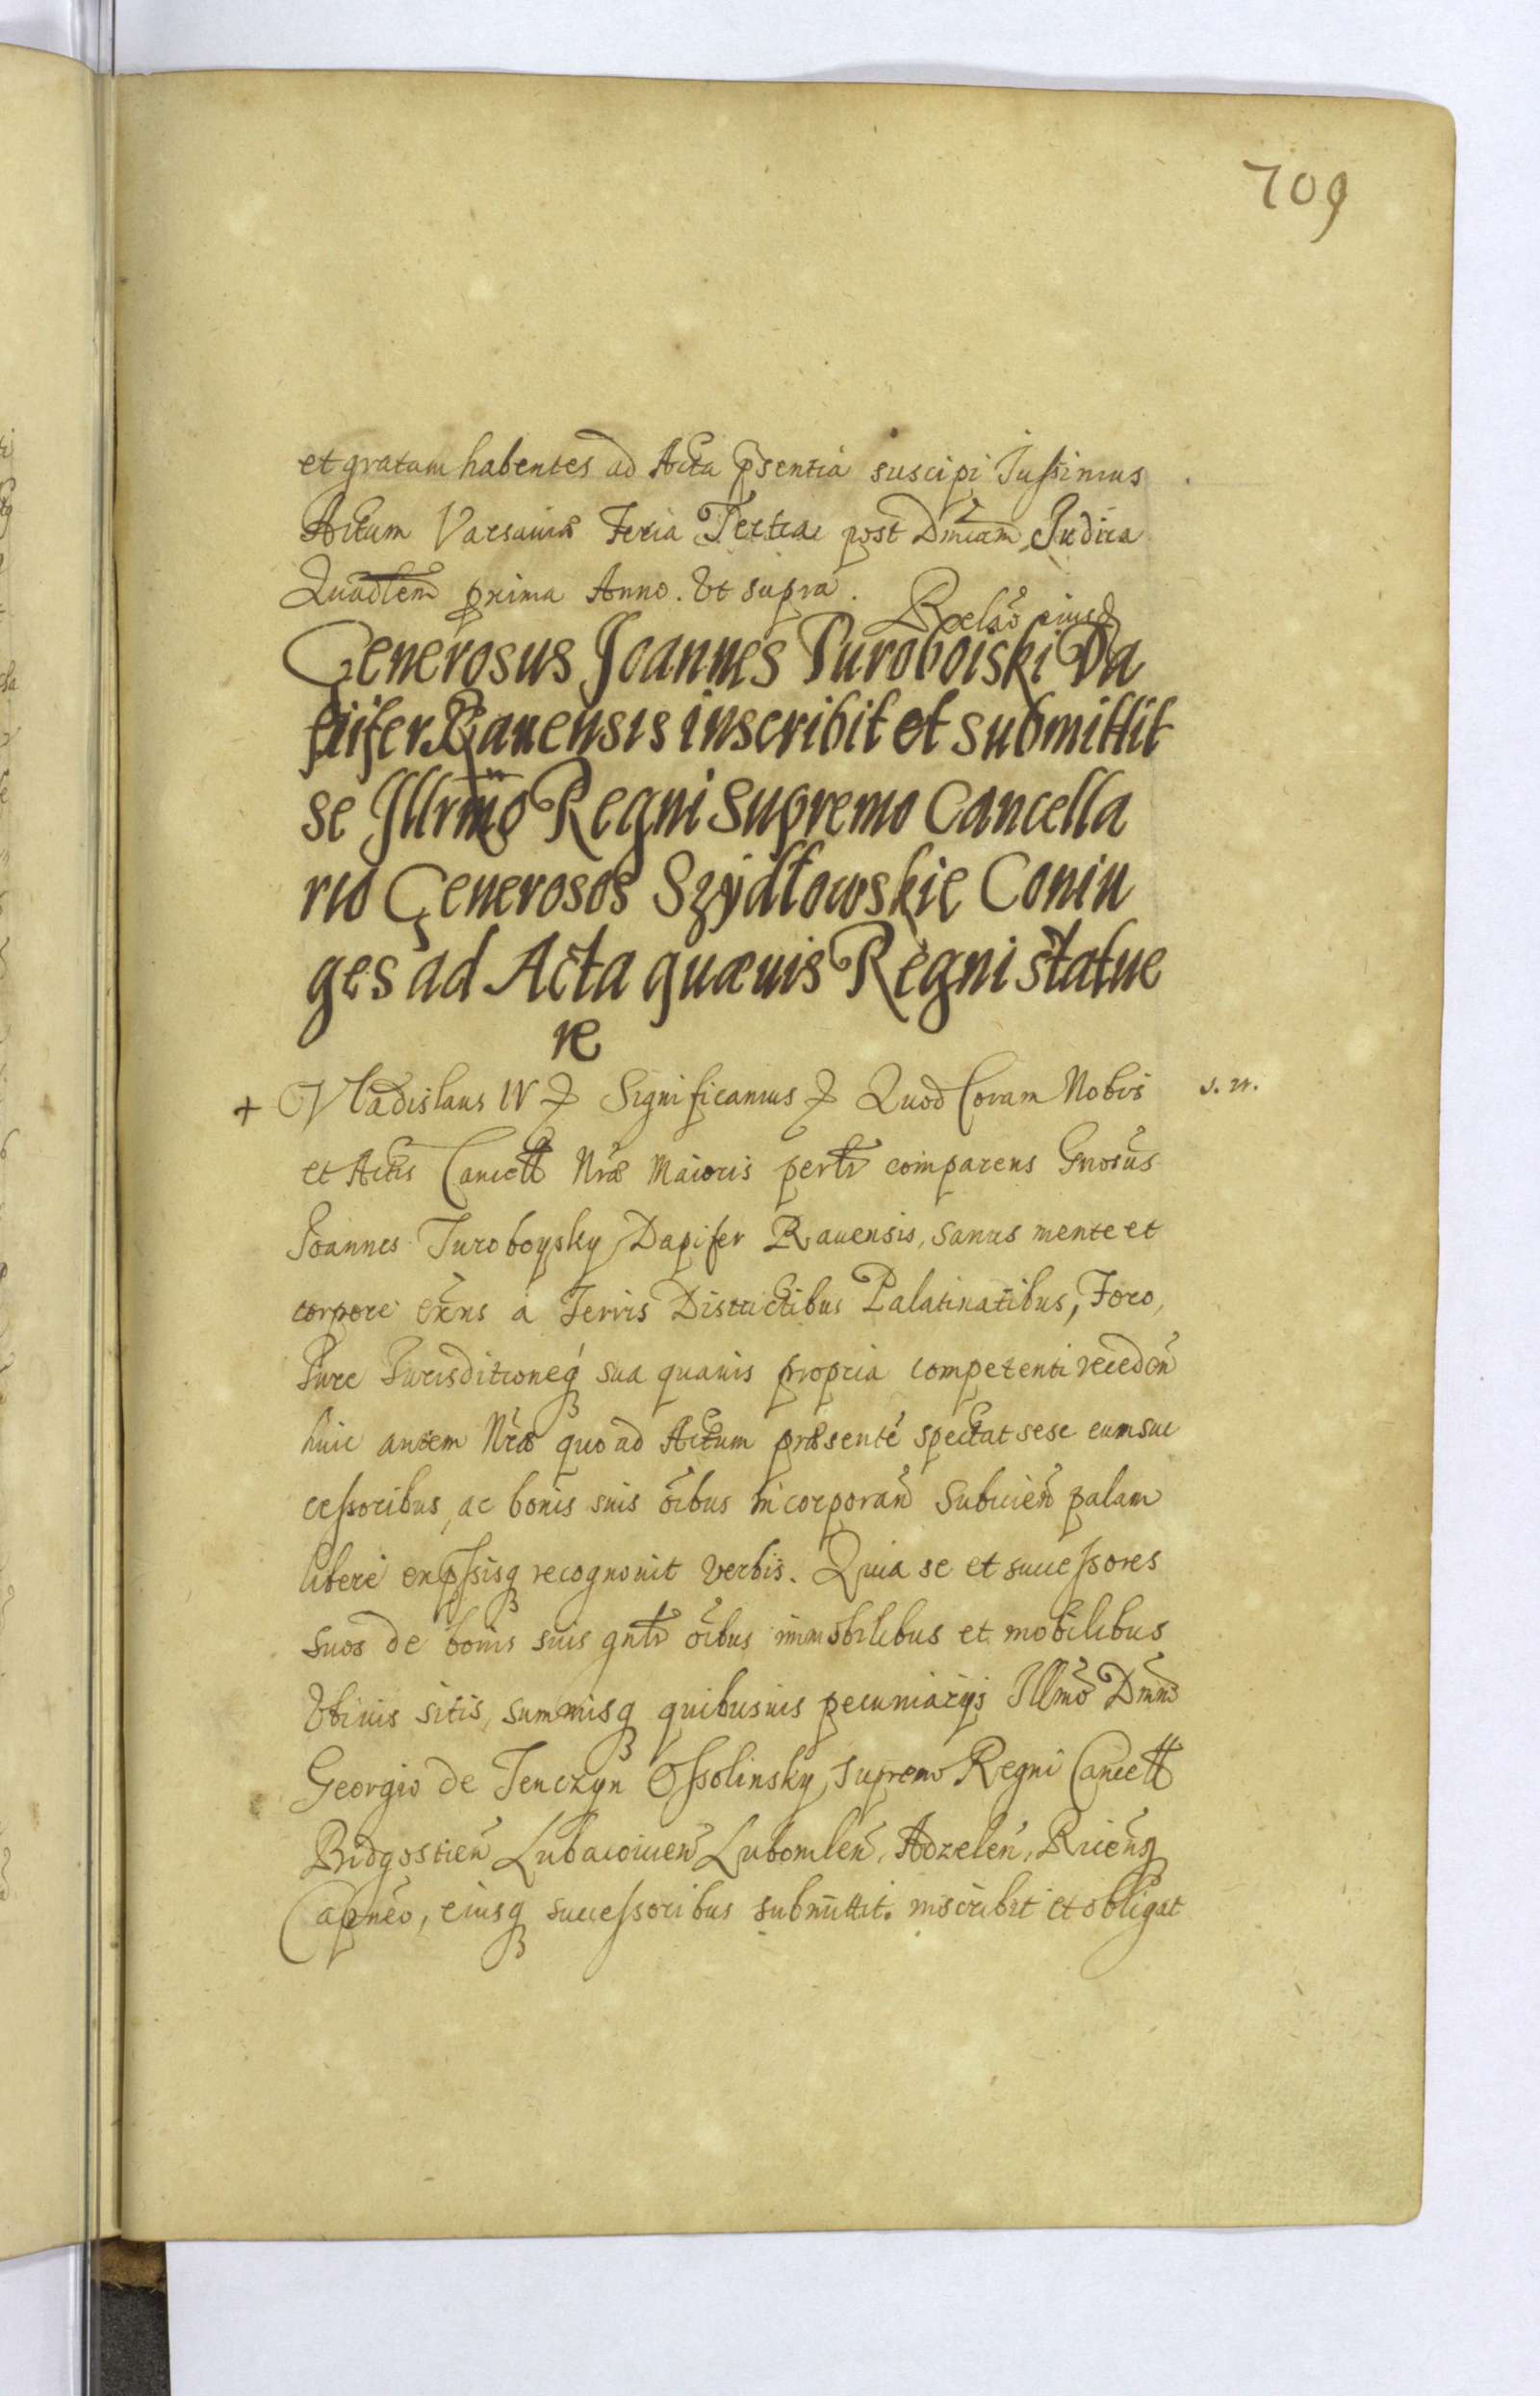 709
et gratam habentes ad Acta p̃sentia suscipi Jussimus.
Actum Varsauiæ Feria Tertia post Dnicam Judica
Quadlem proxima Anno. Vt supra.
Relao eiusd
Generosus Joannes Turoboiski Da
pifer Rauensis inscribit et submittit
se Illrmo Regni Supremo Cancella
rio Generosos Szydłowskie Coniu
ges ad Acta quæuis Regni statue
re
+ Vladislaus IV & Significamus & Quod Coram Nobis s. n.
et Actis Cancell Nræ Maioris perlr comparens Gnosus
Joannes Turoboysky Dapifer Rauensis, sanus mente et
corpore exñs a Terris Districtibus Palatinatibus, Foro,
Jure Jurisditioneq sua quauis propria competenti receden
huic autem Nræ quo ad Actum præsente spectat sese cum suc
cessoribus, ac bonis suis oibus incorporan subiicien palam
libere expssisq recognouit verbis. Quia se et successores
suos de bonis suis gnlr oibus immobilibus et mobilibus
Vbiuis sitis, summisq quibusuis pecuniarijs Illmo Dnno
Georgio de Tenczyn Ossolinsky, supremo Regni Cancell
Bidgostien Lubacouien Lubomlen, Adzelen, Ricenq
Capneo, eiusq successoribus submittit. inscribit et obligat